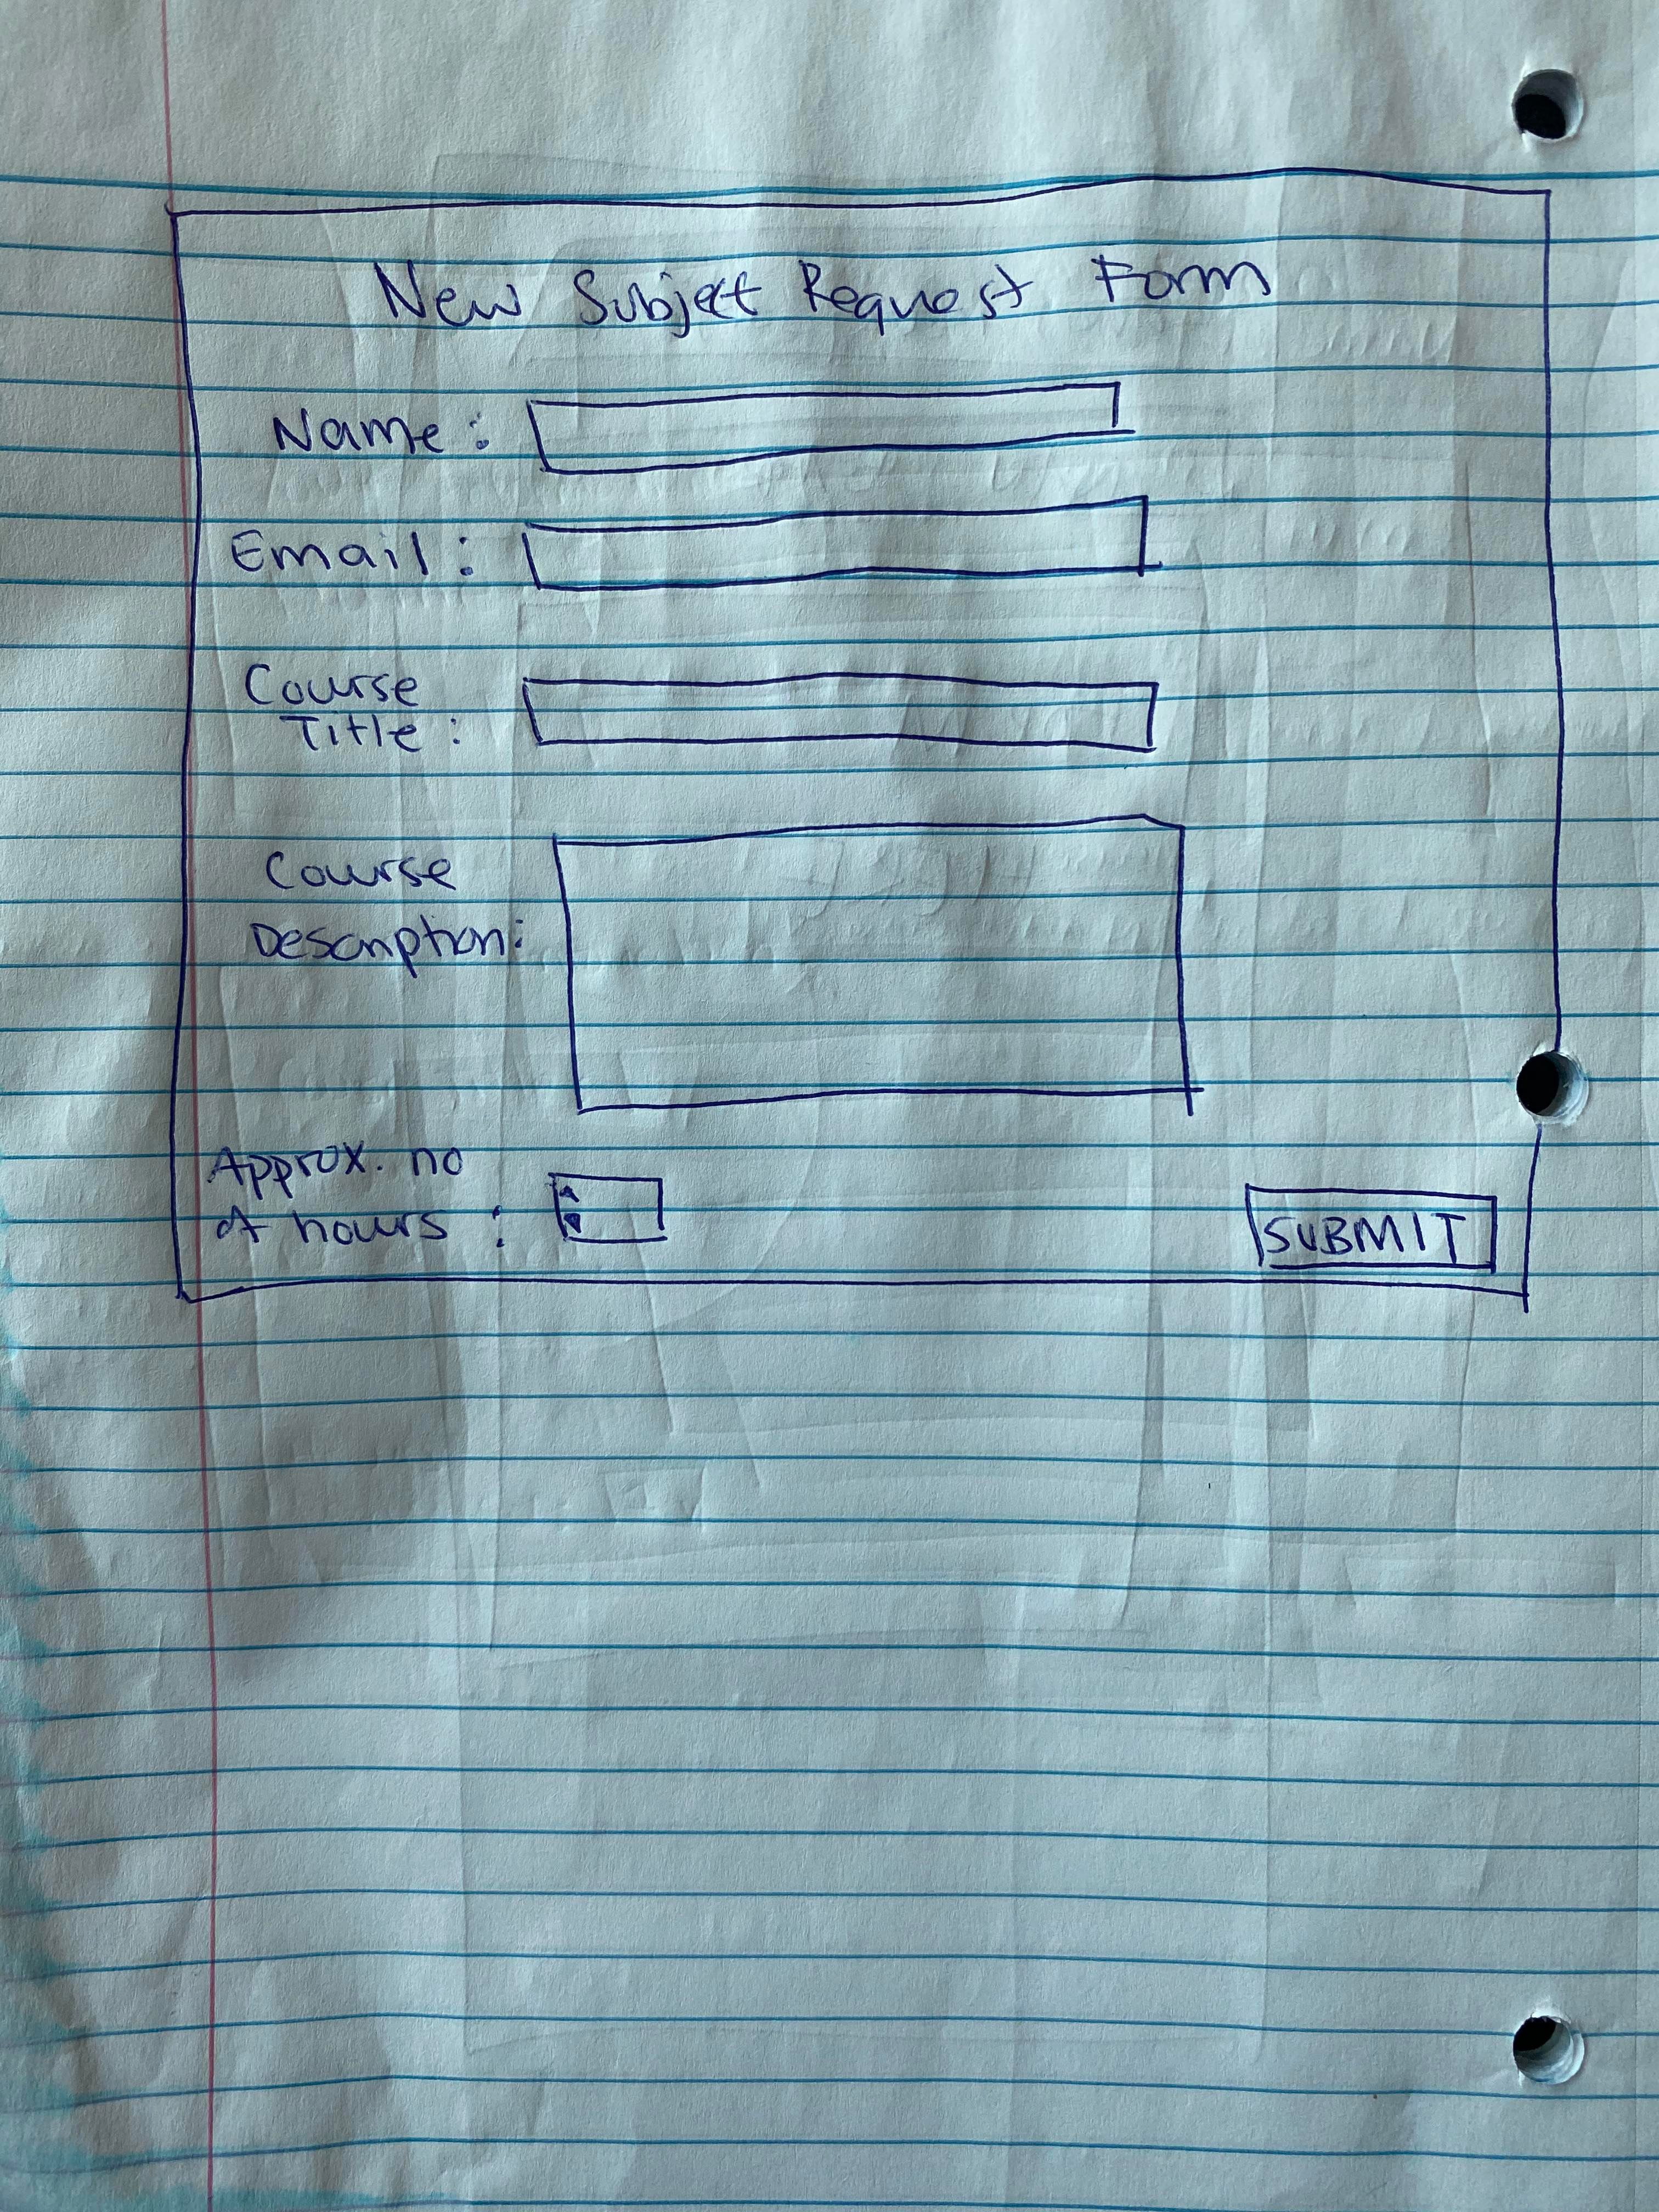 New Subject Request Form
Name:
Email:
Course
Title:
Course
Description:
Approx. no
of hours:
SUBMIT